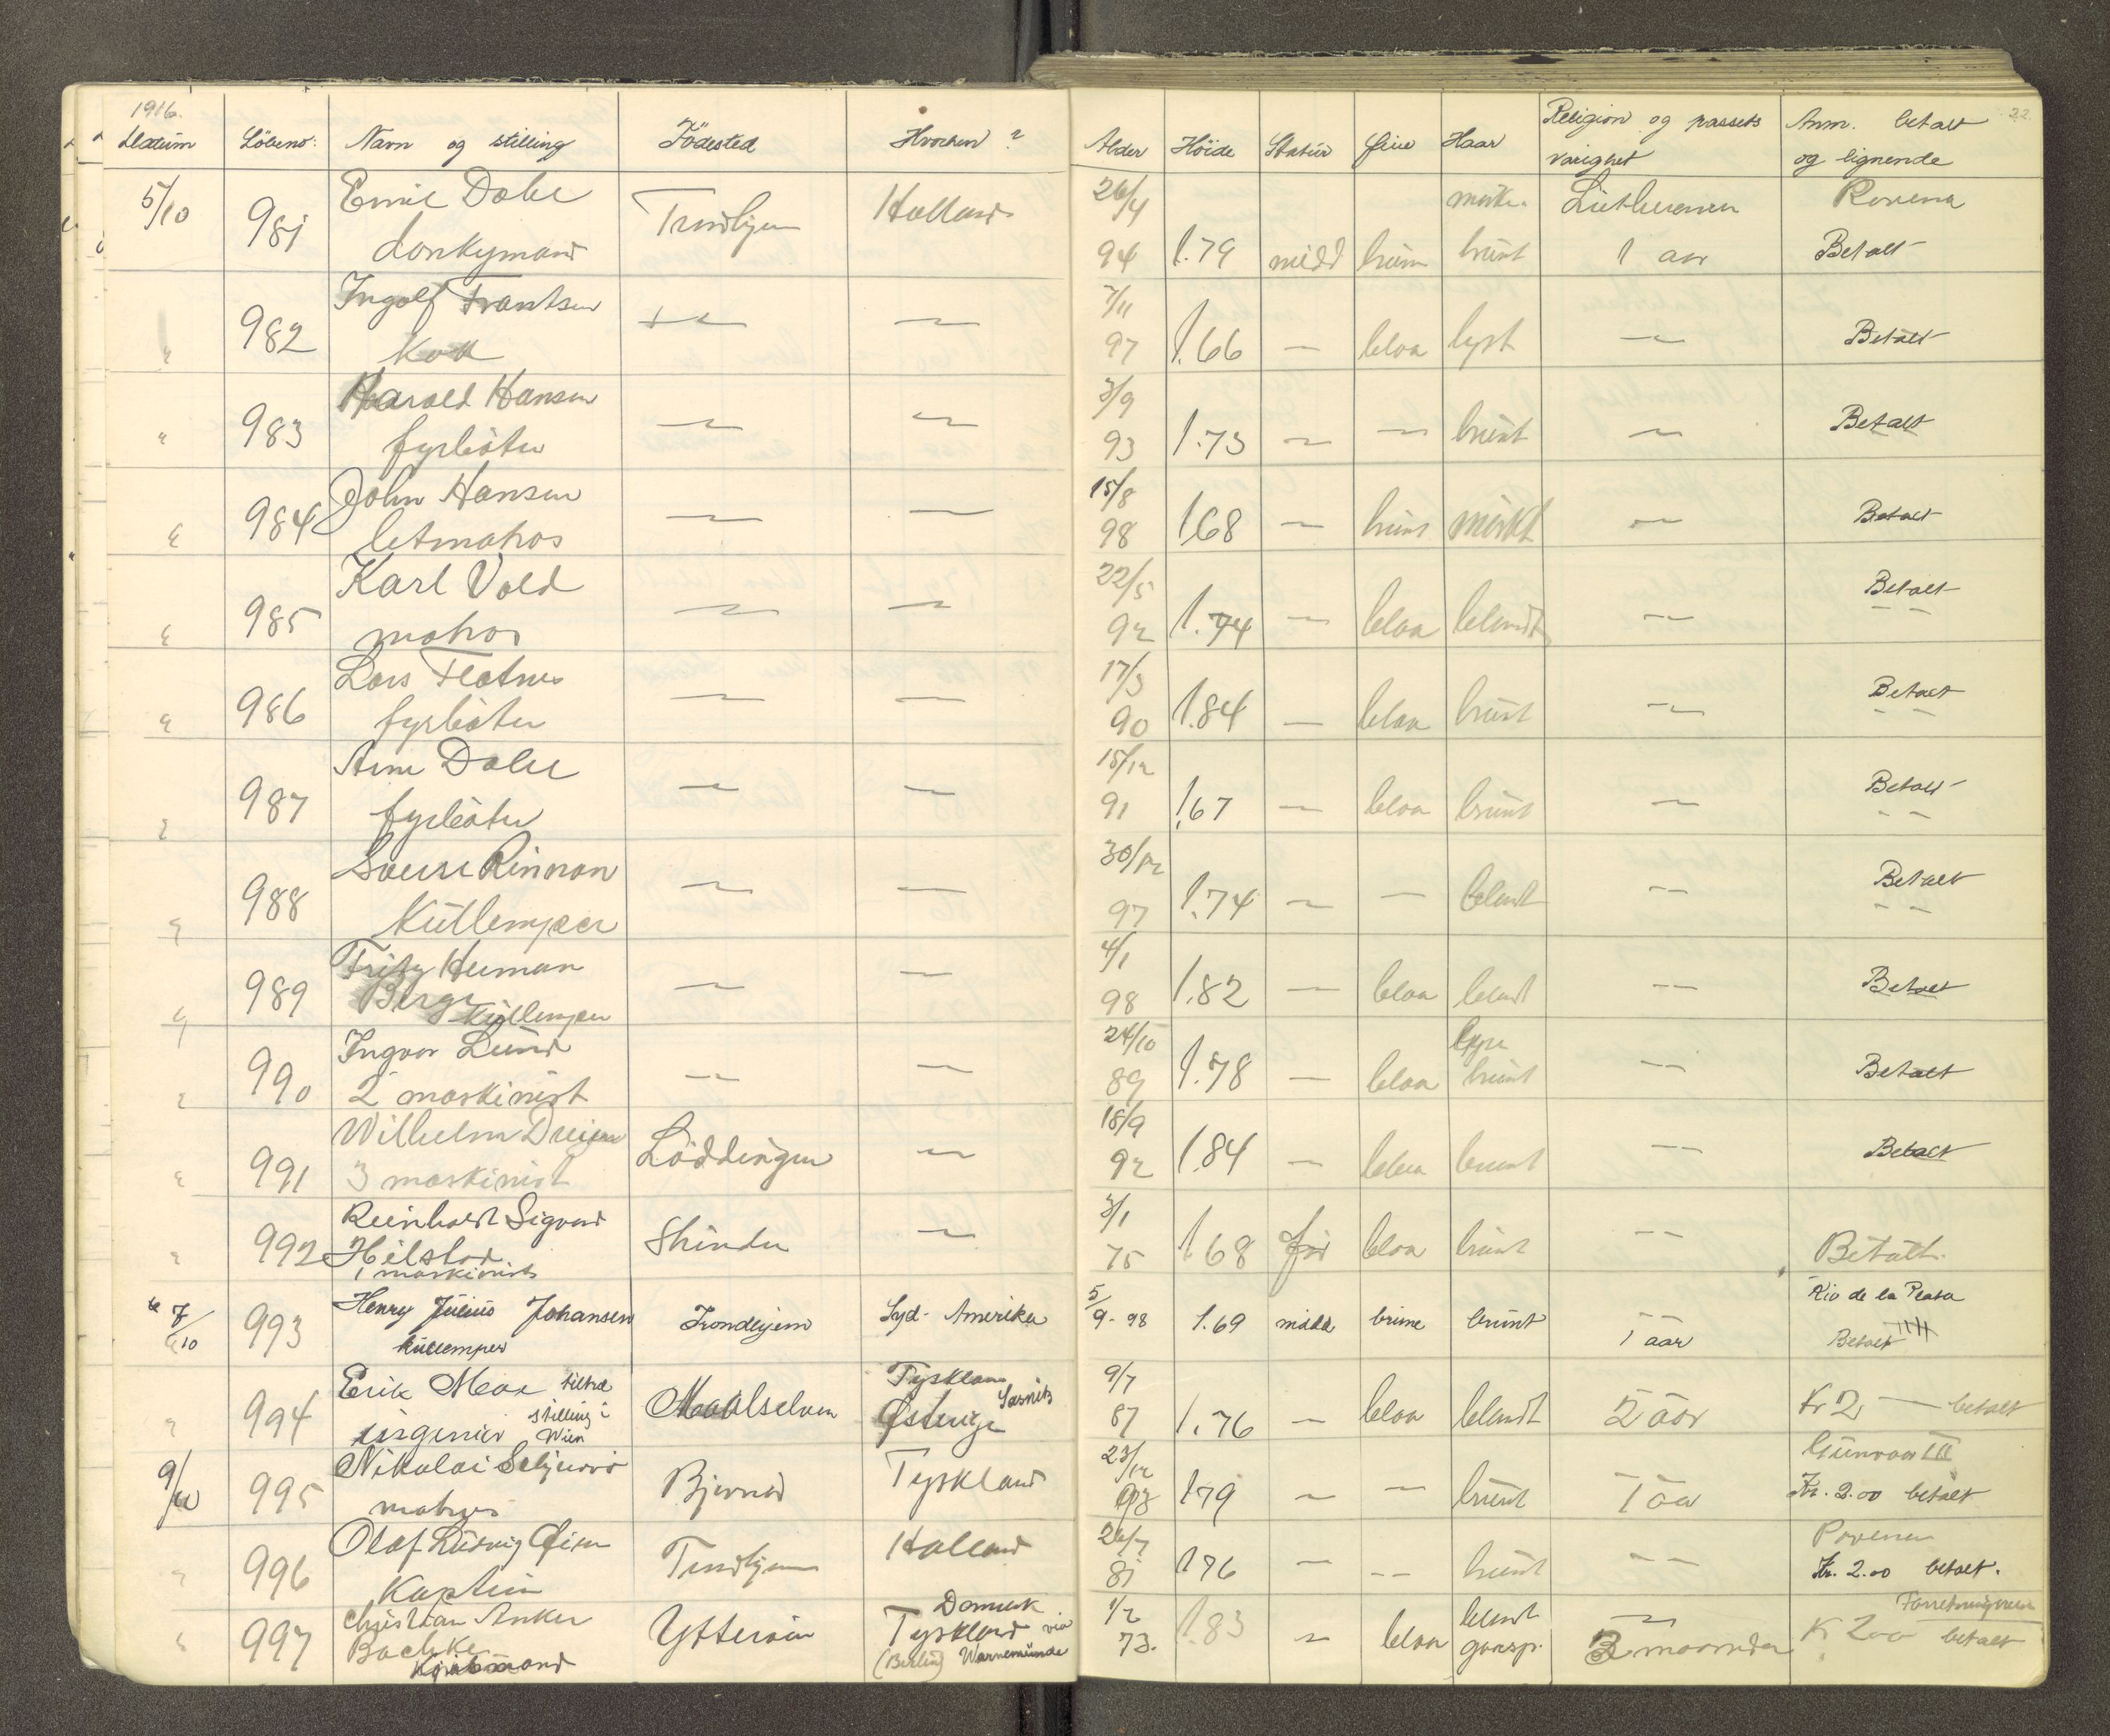 1916.
Datum Löbeno: Navn og stilling Födested Hvorhen? Alder Höide Statur Öine Haar Religion og passets varighet Anm. betalt og lignende 22.
5/10 981 Emil Dahl Trondhjem Holland 26/4 mörke- Lutheraner Rovena
donkymand 94 1.79 midd brune brunt 1 aar Betalt
" 982 Ingolf Frantsen — — 7/11
Kok 97 1.66 — blaa lyst — Betalt
" 983 Harald Hansen — — 3/9
fyrböter 93 1.73 — — brunt — Betalt
" 984 John Hansen — — 15/8
letmatros 98 1.68 — brune mörkt — Betalt
" 985 Karl Vold — — 22/5
matros 92 1.74 — blaa blondt — Betalt
" 986 Lars Flatnes — — 17/3
fyrböter 90 1.84 — blaa brunt — Betalt
" 987 Arne Dahl — — 15/12
fyrböter 91 1.67 — blaa brunt — Betalt
" 988 Rinnan — — 30/12
Kullemper 97 1.74 — — blondt — Betalt
" 989 Fritz Herman — — 4/1
Berge Kullemper 98 1.82 — blaa blondt — Betalt
" 990 Ingvar Lund — — 24/10 lyse
2 maskinist 89 1.78 — blaa brunt — Betalt
" 991 Wilhelm Löddingen — 18/9
3 maskinist 92 1.84 — blaa brunt — Betalt
" 992 Reinholdt Sigvard Strinden — 3/1
Hilstad 75 1.68 för blaa brunt — Betalt.
1 maskinist
7/10 993 Henry Julius Johansen Trondhjem Syd-Amerika 5/9-98 1.69 midd brune brunt 1 aar Rio de la Plata
kullemper Betalt
" 994 Erik Moe tiltræ Maalselven Tyskland Sasnitz 9/7
ingeniör stilling i Wien Østerige 87 1.76 — blaa blondt 2 aar Kr 2 — betalt
9/10 995 Nikolai Bjørnør Tyskland 23/12 Gunvor III
matros 98 1.79 — — brunt 1 aar Kr. 2.00 betalt
" 996 Olaf Ludvig Øien Trondhjem Holland 26/7 Rovena
Kaptein 81 1.76 — — brunt — Kr. 2.00 betalt.
" 997 Christian Anker Ytteröen Danmark 1/2 blondt — Forretningsreise
Bachke Tyskland via 73. 1.83 — blaa graasp. 3 maaneder Kr 2.00 betalt
Kjöbmand (Berlin) Warnemünde